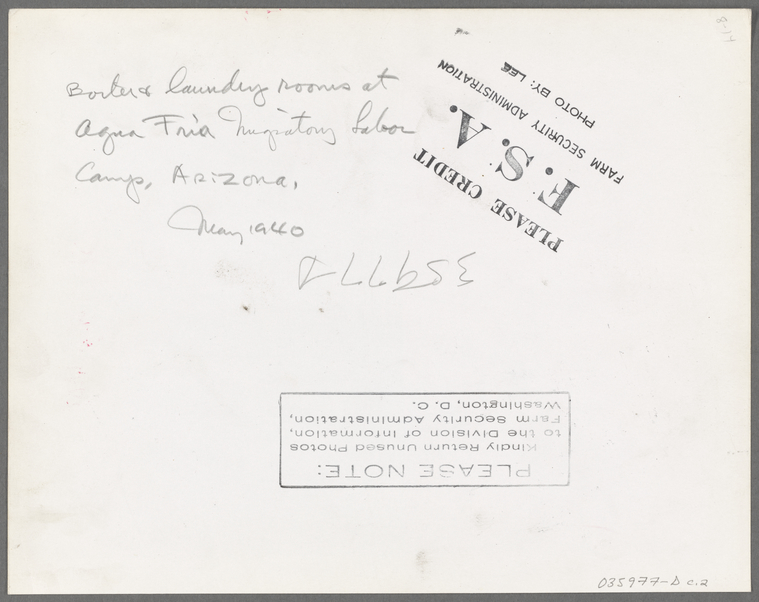 Boiler & laundry rooms at
Agua Fria Migratory Labor
Camp, Arizona,
May 1940
PLEASE CREDIT
F. S. A.
FARM SECURITY ADMINISTRATION
PHOTO BY: LEE
35977D
PLEASE NOTE:
Kindly Return Unused Photos
to the Division of Information,
Farm Security Administration,
Washington, D. C.
035977-D c.2